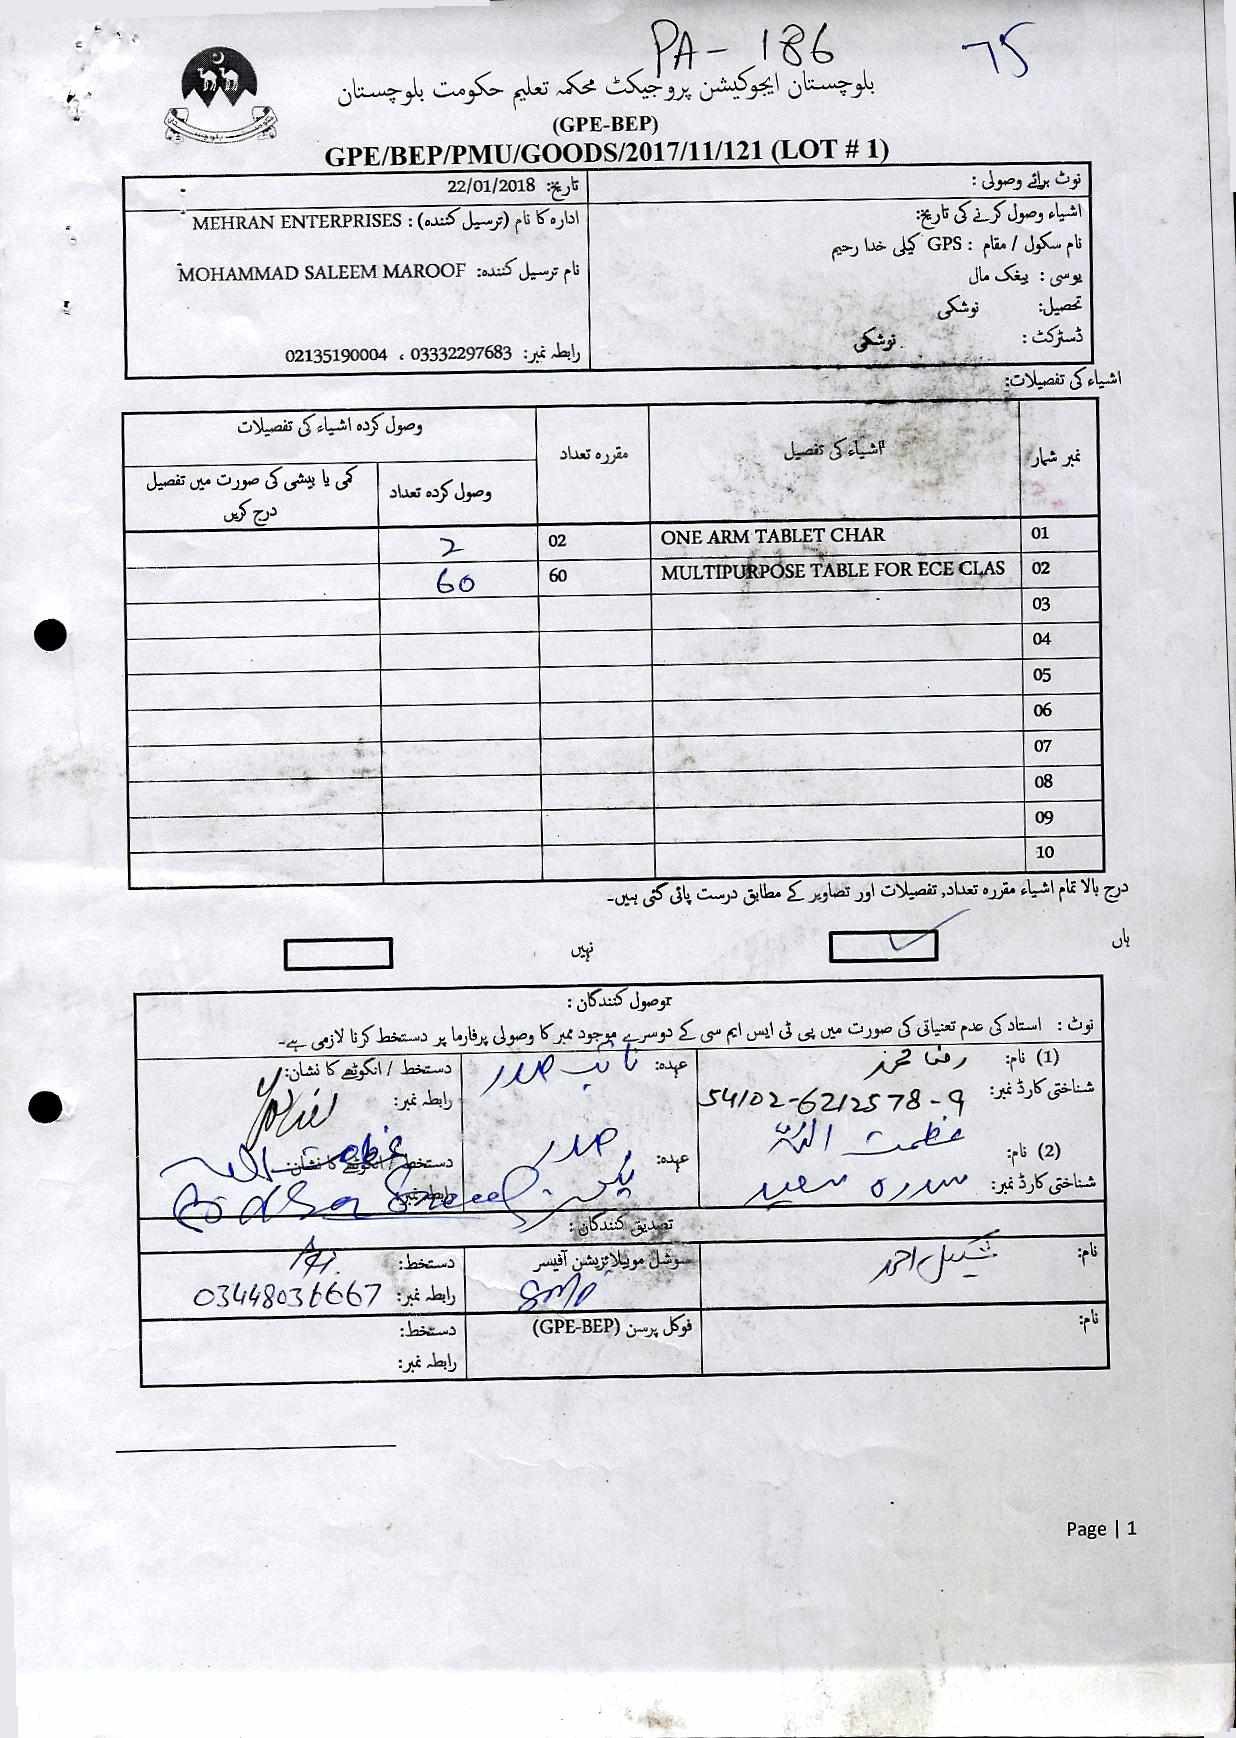 PA - 186
75
بلوچستان ایجوکیشن پروجیکٹ محکمہ تعلیم حکومت بلوچستان
(GPE-BEP)
GPE/BEP/PMU/GOODS/2017/11/121 (LOT # 1)
نوٹ برائے وصولی :
تاریخ: 22/01/2018
اشیاء وصول کرنے کی تاریخ:
ادارہ کا نام (ترسیل کنندہ) : MEHRAN ENTERPRISES
نام سکول / مقام : GPS کیلی خدا رحیم
نام ترسیل کنندہ: MOHAMMAD SALEEM MAROOF
یوسی : بیغک مال
تحصیل: نوشکی
ڈسٹرکٹ : نوشکی
رابطہ نمبر: 03332297683 ، 02135190004
اشیاء کی تفصیلات:
نمبر شمار
اشیاء کی تفصیل
مقررہ تعداد
وصول کردہ اشیاء کی تفصیلات
وصول کردہ تعداد
کمی یا بیشی کی صورت میں تفصیل درج کریں
01 ONE ARM TABLET CHAR 02 2
02 MULTIPURPOSE TABLE FOR ECE CLAS 60 60
03
04
05
06
07
08
09
10
درج بالا تمام اشیاء مقررہ تعداد, تفصیلات اور تصاویر کے مطابق درست پائی گئی ہیں۔
ہاں ✓ نہیں
وصول کنندگان :
نوٹ : استاد کی عدم تعنیاتی کی صورت میں پی ٹی ایس ایم سی کے دوسرے موجود ممبر کا وصولی پرفارما پر دستخط کرنا لازمی ہے۔
(1) نام: عہدہ: نائب صدر دستخط / انگوٹھے کا نشان:
شناختی کارڈ نمبر: 54102-6212578-9 رابطہ نمبر:
(2) نام: عظمت اللہ عہدہ: صدر دستخط / انگوٹھے کا نشان:
شناختی کارڈ نمبر: سدرہ سعید رابطہ نمبر:
تصدیق کنندگان :
نام: شکیل احمد سوشل موبیلائزیشن آفیسر دستخط:
رابطہ نمبر: 03448036667
نام: فوکل پرسن (GPE-BEP) دستخط:
رابطہ نمبر:
Page | 1